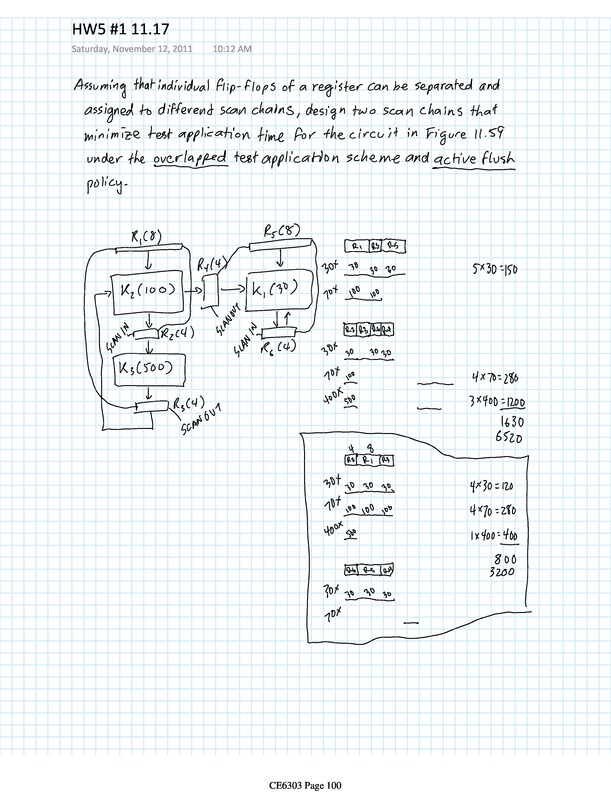 HW5 #1 11.17
Saturday, November 12, 2011 10:12 AM
Assuming that individual flip-flops of a register can be separated and
assigned to different scan chains, design two scan chains that
minimize test application time for the circuit in Figure 11.59
under the overlapped test application scheme and active flush
policy.
R1(8)
R5(8)
R4(4)
K2(100)
K1(30)
SCAN IN
R2(4)
SCAN OUT
SCAN IN
R6(4)
K3(500)
R3(4)
SCAN OUT
R1 R3 R5
30x 30 30 30 5x30=150
70x 100 100
30x 30 30 30
70x 100 4x70=280
400x 500 3x400=1200
1630
6520
4 8
R2 R1
30x 30 30 30 4x30=120
70x 100 100 100 4x70=280
400x 500 1x400=400
800
3200
30x 30 30 30
70x
CE6303 Page 100